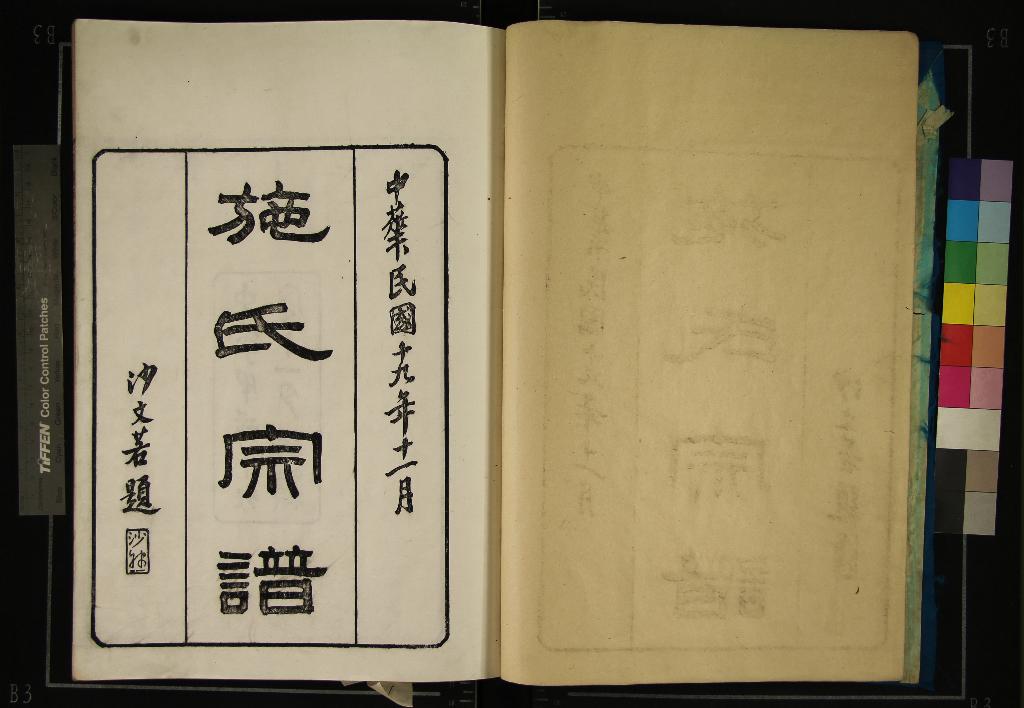 中華民國十九年十一月
施氏宗譜
沙文若題
TIFFEN Color Control Patches
B3